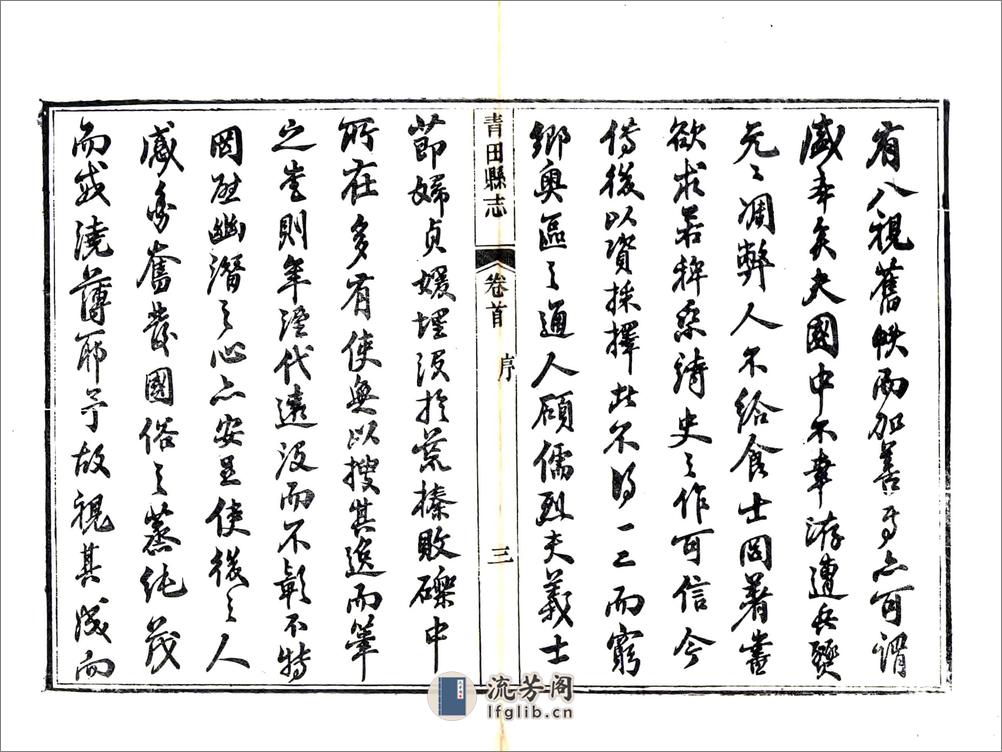 有八視舊帙而加善焉亦可謂
盛事矣夫國中不幸洊遭兵燹
元元凋弊人不給食士罔著書
欲求若稗乘諸史之作可信今
傳後以資採擇此不得一二而窮
鄉奧區之通人碩儒烈夫義士
青田縣志
卷首
序
三
節婦貞媛埋沒於荒榛敗礫中
所在多有使無以搜其逸而筆
之書則年湮代遠沒而不彰不特
罔慰幽潛之心亦安足使後之人
感而奮發國俗之蒸純茂
而戒澆薄耶予故視其成而
流芳阁
lfglib.cn